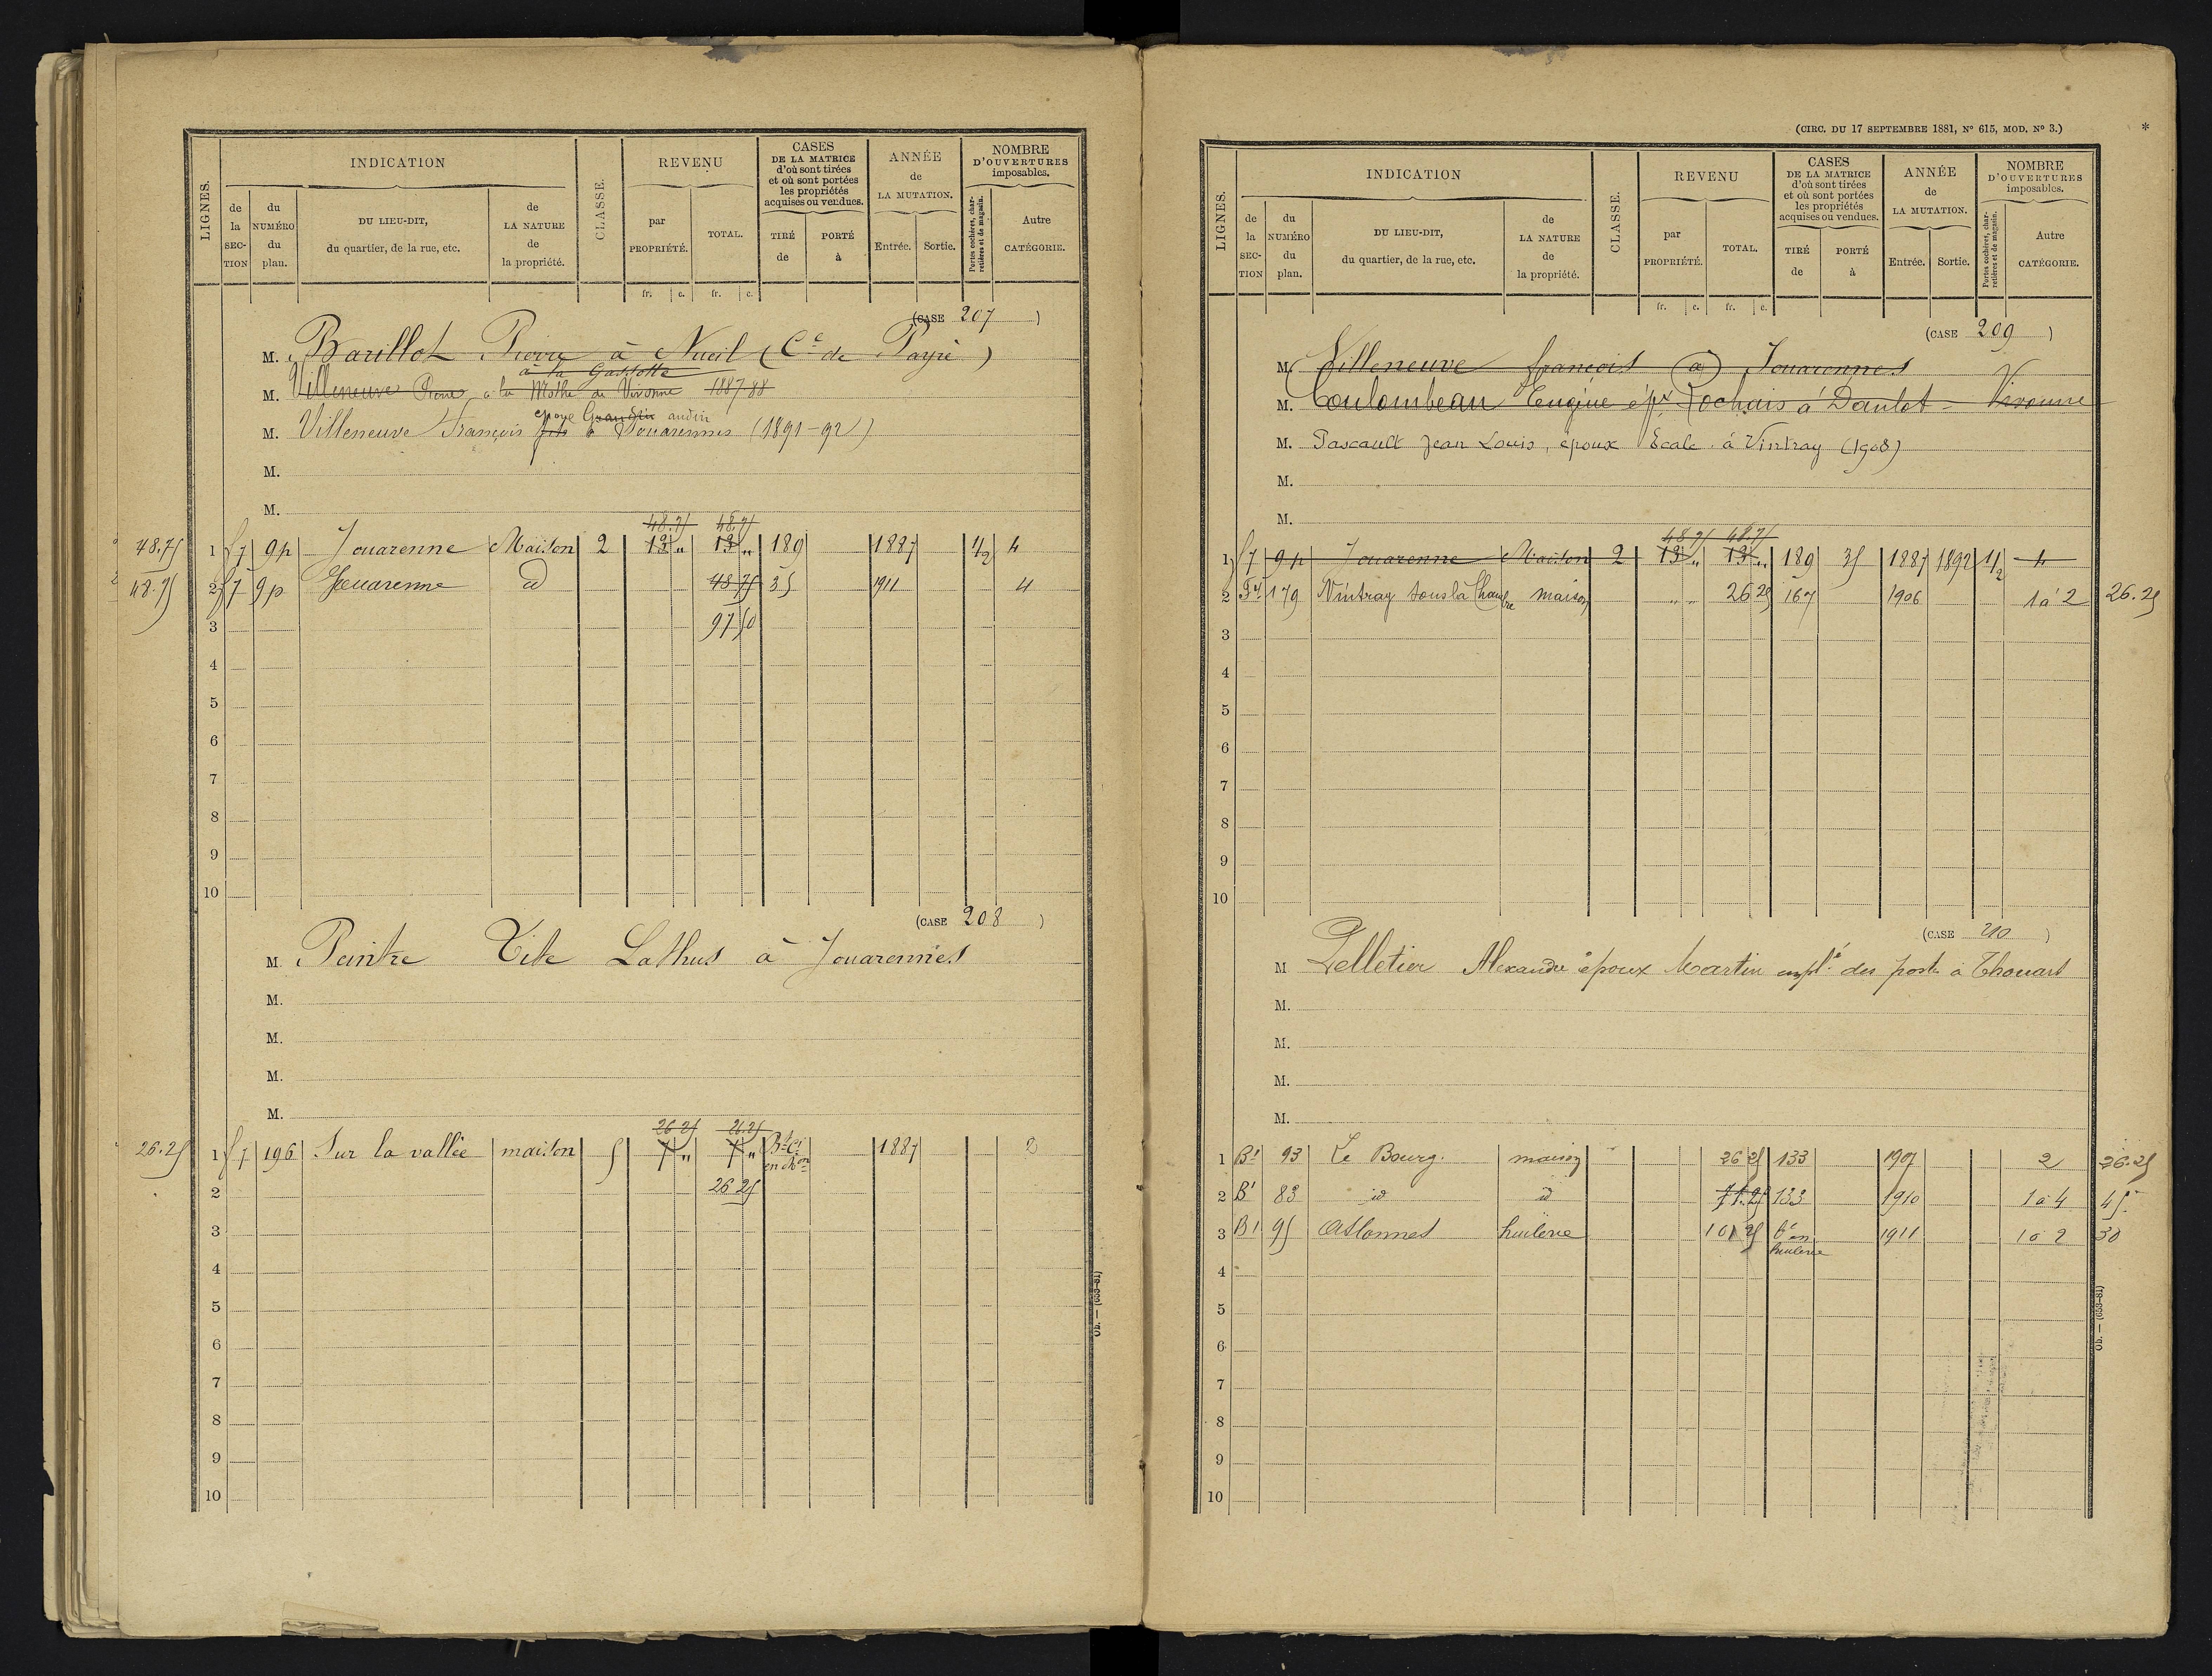 LIGNES. INDICATION CLASSE. REVENU CASES DE LA MATRICE d'où sont tirées et où sont portées les propriétés acquises ou vendues. ANNÉE de LA MUTATION. NOMBRE D'OUVERTURES imposables.
de la SECTION du NUMÉRO du plan. DU LIEU-DIT, du quartier, de la rue, etc. de LA NATURE de la propriété. par PROPRIÉTÉ. TOTAL. TIRÉ de PORTÉ à Entrée. Sortie. Portes cochères, charretières et de magasin. Autre CATÉGORIE.
fr. c. fr. c.
(CASE 207)
M. Barillot Pierre à Nueil (Cne de Payré)
à la Gassotte
M. Villeneuve Pierre à la Mothe de Vivonne 1887-88
epoux Grandin audin
M. Villeneuve François fils à Jouarennes (1891-92)
M.
M.
48.75 48.75
48.75 1 f7 9p Jouarenne Maison 2 13 " 13 " 189 1887 1/2 4
48.75 2 f7 9p Jouarenne id 48 75 35 1911 4
3 97 50
4
5
6
7
8
9
10
(CASE 208)
M Peintre Tite Lathus à Jouarennes
M.
M.
M.
M.
26 25 26.25
26.25 1 f7 196 Sur la vallée maison 5 7 " 7 " en chon 1887 2
2 26 25
3
4
5
6
7
8
9
10
Ob. — (653-81)
(CIRC. DU 17 SEPTEMBRE 1881, N° 615, MOD. N° 3.) *
LIGNES. INDICATION CLASSE. REVENU CASES DE LA MATRICE d'où sont tirées et où sont portées les propriétés acquises ou vendues. ANNÉE de LA MUTATION. NOMBRE D'OUVERTURES imposables.
de la SECTION du NUMÉRO du plan. DU LIEU-DIT, du quartier, de la rue, etc. de LA NATURE de la propriété. par PROPRIÉTÉ. TOTAL. TIRÉ de PORTÉ à Entrée. Sortie. Portes cochères, charretières et de magasin. Autre CATÉGORIE.
fr. c. fr. c.
(CASE 209)
M. Villeneuve françois à Jouarennes
M. Coulombeau Eugène épx Rochais à Danlot - Vivonne
M. Pascault Jean Louis, époux Ecale à Vintray (1908)
M.
M.
48 75 48.75
1 f7 9p Jouarenne Maison 2 13 " 13 " 189 35 1887 1892 1/2 4
2 179 Vintray sous la maison " " 26 25 167 1906 1 à 2 26.25
3
4
5
6
7
8
9
10
(CASE 210)
M Pelletier Alexandre époux Martin emplé des poste à Thouars
M.
M.
M.
M.
1 B1 93 Le Bourg. maison 26 25 133 1907 2 26.25
2 B1 83 id id 71.25 133 1910 1 à 4 45 -
3 B1 95 Aslonnes huilerie 101 25 en huilerie 1911 1 à 2 30
4
5
6
7
8
9
10
Ob. — (653-81)